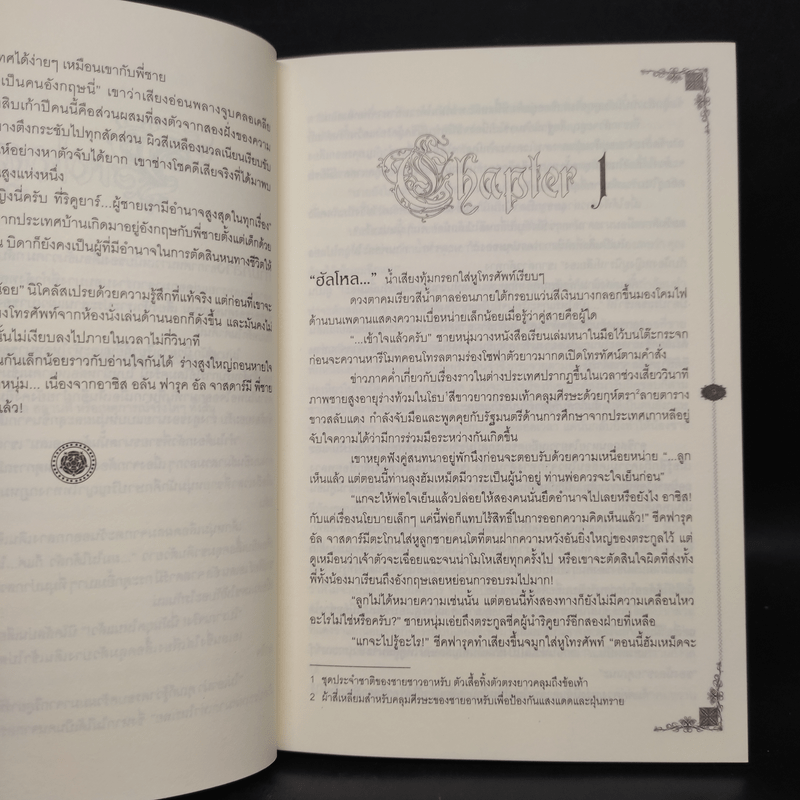 ทศได้ง่ายๆ เหมือนเขากับพี่ชาย
เป็นคนอังกฤษนี่" เขาว่าเสียงอ่อนพลางจูบคลอเคลีย
สิบเก้าปีคนนี้คือส่วนผสมที่ลงตัวจากสองฝั่งของความ
างตึงกระชับไปทุกสัดส่วน ผิวสีเหลืองนวลเนียนเรียบขับ
ห์อย่างหาตัวจับได้ยาก เขาช่างโชคดีเสียจริงที่ได้มาพบ
นสูงแห่งหนึ่ง
ญิงนี่ครับ ที่ริคูยาร์...ผู้ชายเรามีอำนาจสูงสุดในทุกเรื่อง"
ากประเทศบ้านเกิดมาอยู่อังกฤษกับพี่ชายตั้งแต่เด็กด้วย
น บิดาก็ยังคงเป็นผู้ที่มีอำนาจในการตัดสินหนทางชีวิตให้
น้อย" นิโคลัสเปรยด้วยความรู้สึกที่แท้จริง แต่ก่อนที่เขาจะ
ยงโทรศัพท์จากห้องนั่งเล่นด้านนอกก็ดังขึ้น และมันคงไม่
ั้นไม่เงียบลงไปภายในเวลาไม่กี่วินาที
นกันเล็กน้อยราวกับอ่านใจกันได้ ร่างสูงใหญ่ถอนหายใจ
หนุ่ม... เนื่องจากอาซิส อลัน ฟารุค อัล จาสดาร์มี พี่ชาย
แล้ว!
Chapter 1
"ฮัลโหล..." น้ำเสียงทุ้มกรอกใส่หูโทรศัพท์เรียบๆ
ดวงตาคมเรียวสีน้ำตาลอ่อนภายใต้กรอบแว่นสีเงินบางกลอกขึ้นมองโคมไฟ
ด้านบนเพดานแสดงความเบื่อหน่ายเล็กน้อยเมื่อรู้ว่าคู่สายคือผู้ใด
"...เข้าใจแล้วครับ" ชายหนุ่มวางหนังสือเรียนเล่มหนาในมือไว้บนโต๊ะกระจก
ก่อนจะควานหารีโมทคอนโทรลตามร่องโซฟาตัวยาวมากดเปิดโทรทัศน์ตามคำสั่ง
ข่าวภาคค่ำเกี่ยวกับเรื่องราวในต่างประเทศปรากฏขึ้นในเวลาช่วงเสี้ยววินาที
ภาพชายสูงอายุร่างท้วมในโธบ¹สีขาวยาวกรอมเท้าคลุมศีรษะด้วยกุห์ตรา²ลายตาราง
ขาวสลับแดง กำลังจับมือและพูดคุยกับรัฐมนตรีด้านการศึกษาจากประเทศเกาหลีอยู่
จับใจความได้ว่ามีการร่วมมือระหว่างกันเกิดขึ้น
เขาหยุดฟังคู่สนทนาอยู่พักนึงก่อนจะตอบรับด้วยความเหนื่อยหน่าย "...ลูก
เห็นแล้ว แต่ตอนนี้ท่านลุงฮัมเหม็ดมีวาระเป็นผู้นำอยู่ ท่านพ่อควรจะใจเย็นก่อน"
"แกจะให้พ่อใจเย็นแล้วปล่อยให้สองคนนั่นยึดอำนาจไปเลยหรือยังไง อาซิส!
กับแค่เรื่องนโยบายเล็กๆ แค่นี้พ่อก็แทบไร้สิทธิ์ในการออกความคิดเห็นแล้ว!" ชีคฟารุค
อัล จาสดาร์มีตะโกนใส่หูลูกชายคนโตที่ตนฝากความหวังอันยิ่งใหญ่ของตระกูลไว้ แต่
ดูเหมือนว่าเจ้าตัวจะเฉื่อยแฉะจนน่าโมโหเสียทุกครั้งไป หรือเขาจะตัดสินใจผิดที่ส่งทั้ง
พี่ทั้งน้องมาเรียนถึงอังกฤษเลยหย่อนการอบรมไปมาก!
"ลูกไม่ได้หมายความเช่นนั้น แต่ตอนนี้ทั้งสองทางก็ยังไม่มีความเคลื่อนไหว
อะไรไม่ใช่หรือครับ?" ชายหนุ่มเอ่ยถึงตระกูลชีคผู้นำริคูยาร์อีกสองฝ่ายที่เหลือ
"แกจะไปรู้อะไร!" ชีคฟารุคทำเสียงขึ้นจมูกใส่หูโทรศัพท์ "ตอนนี้ฮัมเหม็ดจะ
1 ชุดประจำชาติของชายชาวอาหรับ ตัวเสื้อทิ้งตัวตรงยาวคลุมถึงข้อเท้า
2 ผ้าสี่เหลี่ยมสำหรับคลุมศีรษะของชายอาหรับเพื่อป้องกันแสงแดดและฝุ่นทราย